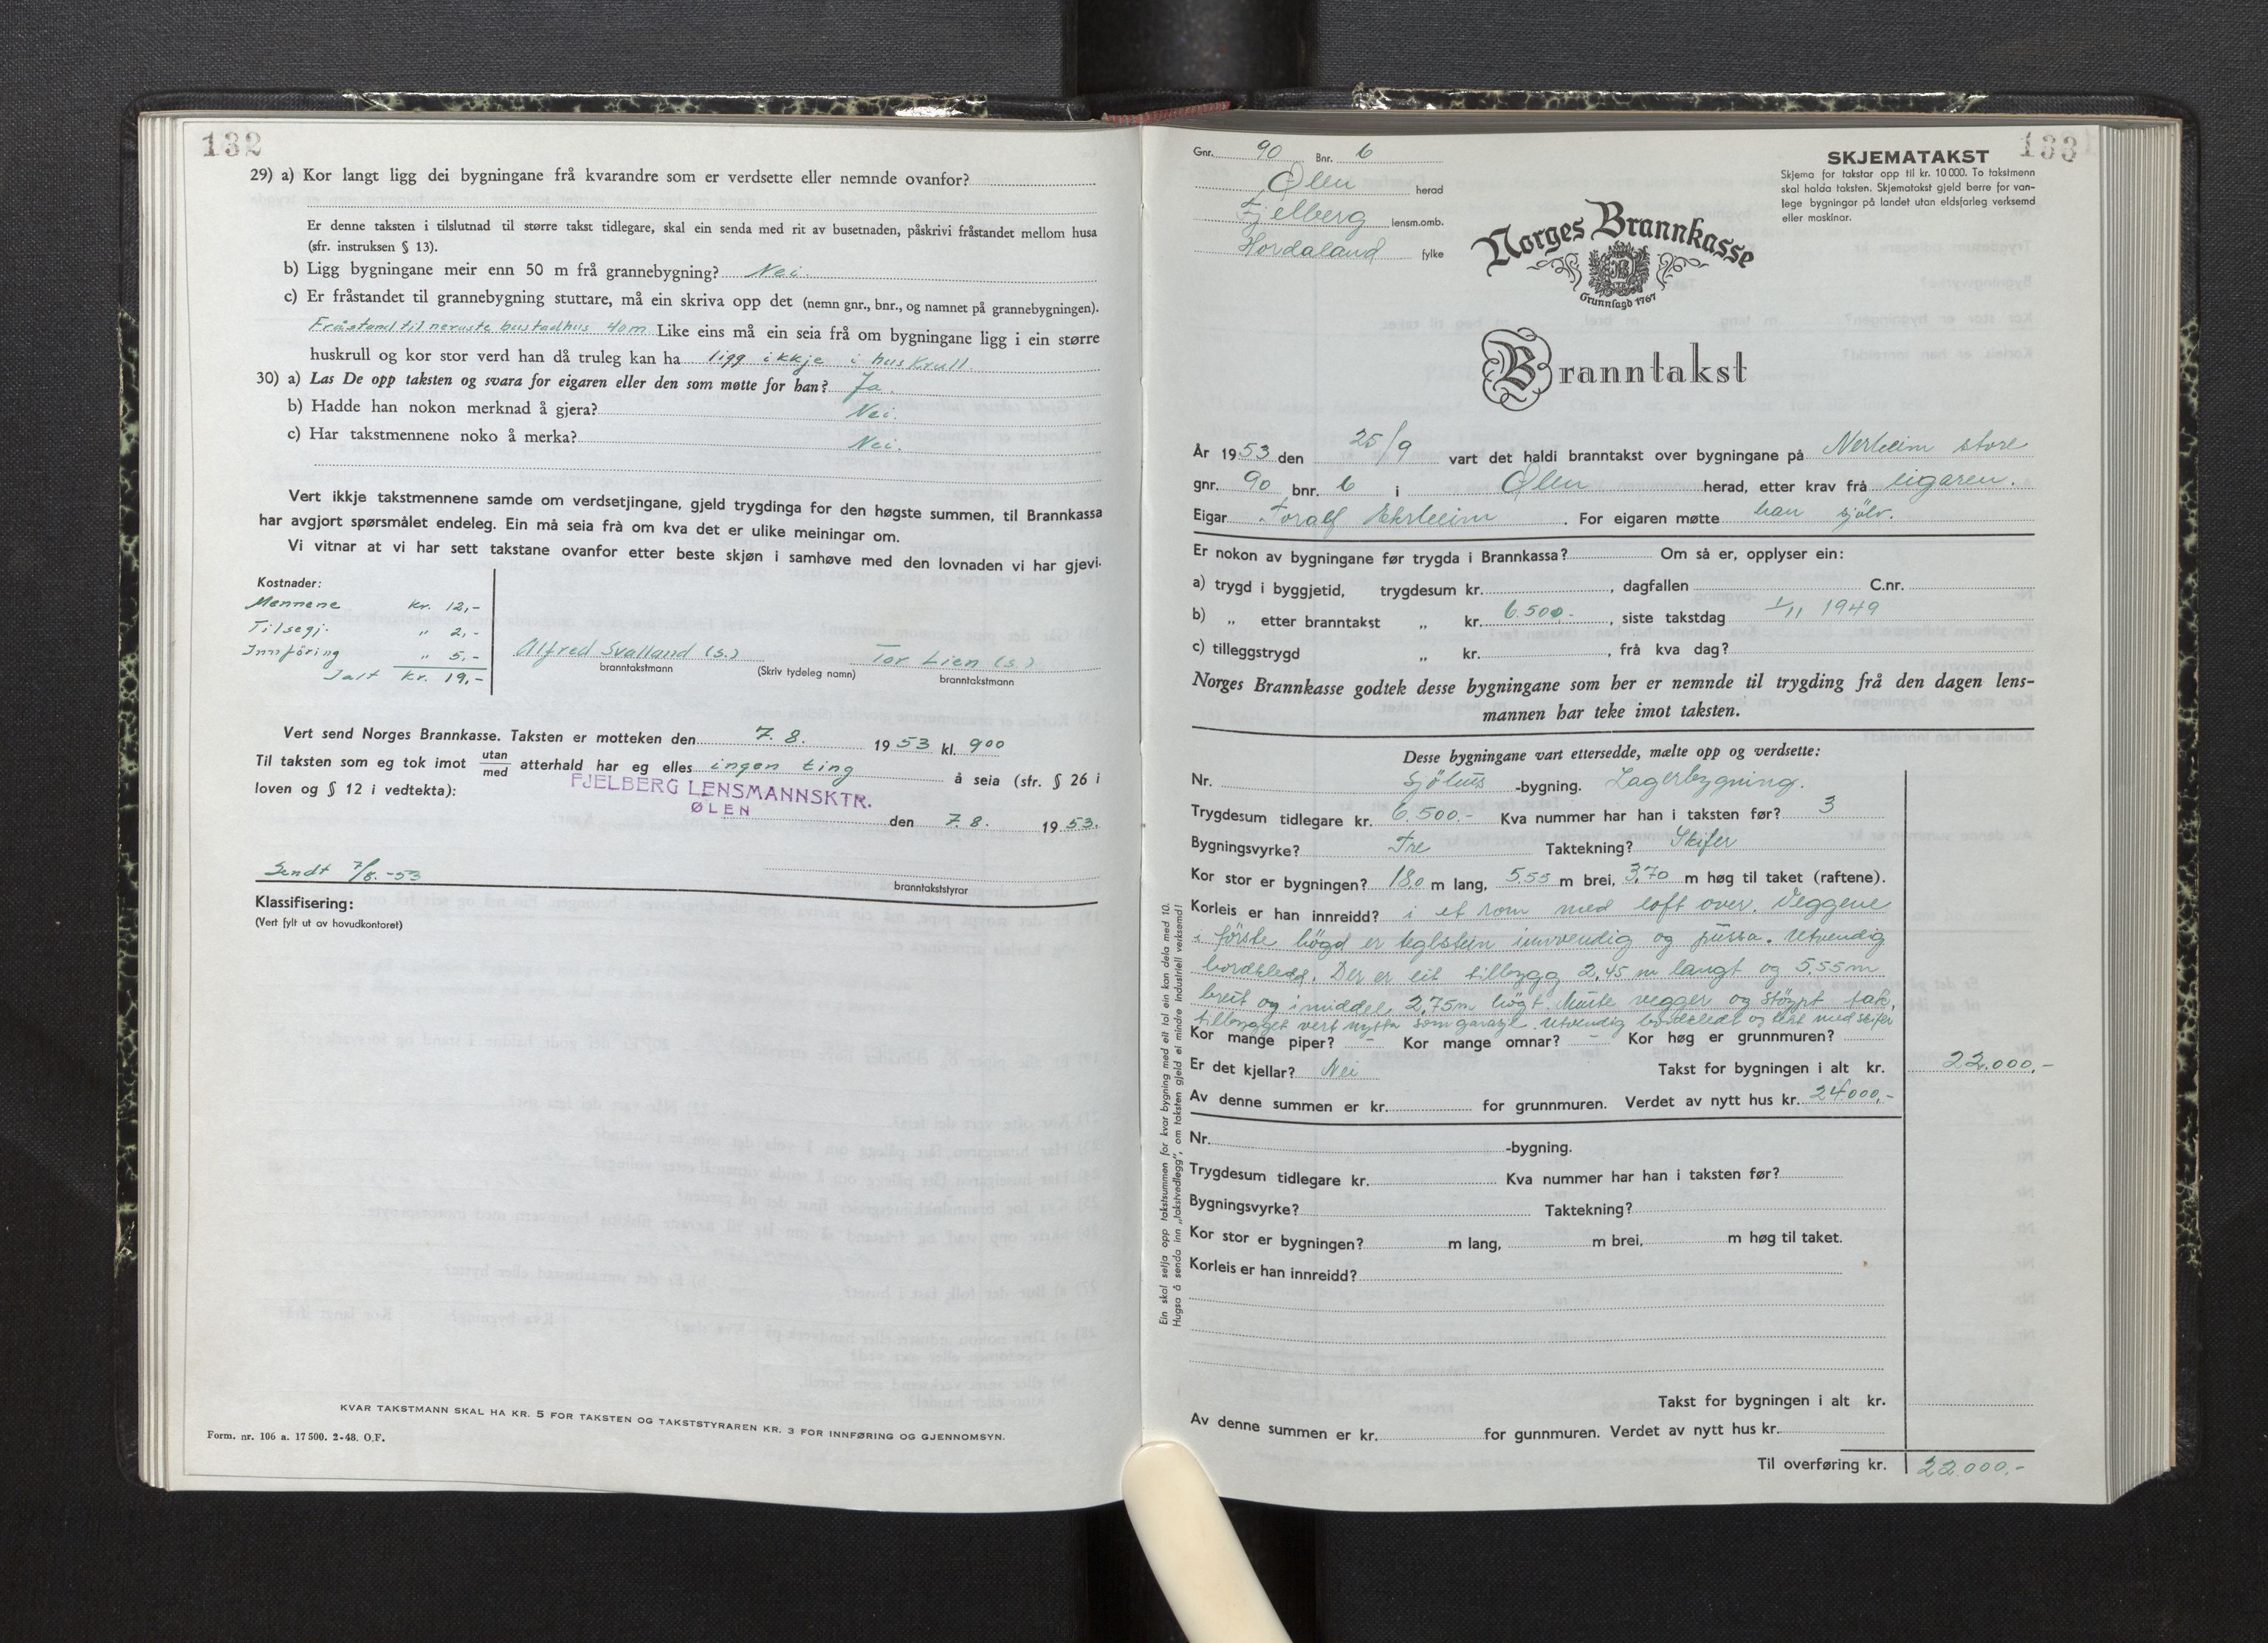 132
29) a) Kor langt ligg dei bygningane frå kvarandre som er verdsette eller nemnde ovanfor?
Er denne taksten i tilslutnad til større takst tidlegare, skal ein senda med rit av busetnaden, påskrivi fråstandet mellom husa
(sfr. instruksen § 13).
b) Ligg bygningane meir enn 50 m frå grannebygning? Nei.
c) Er fråstandet til grannebygning stuttare, må ein skriva opp det (nemn gnr., bnr., og namnet på grannebygningen).
Fråstand til næruste bustadhus 40 m Like eins må ein seia frå om bygningane ligg i ein større
huskrull og kor stor verd han då truleg kan ha ligg ikkje i huskrull.
30) a) Las De opp taksten og svara for eigaren eller den som møtte for han? Ja.
b) Hadde han nokon merknad å gjera? Nei.
c) Har takstmennene noko å merka? Nei.
Vert ikkje takstmennene samde om verdsetjingane, gjeld trygdinga for den høgste summen, til Brannkassa
har avgjort spørsmålet endeleg. Ein må seia frå om kva det er ulike meiningar om.
Vi vitnar at vi har sett takstane ovanfor etter beste skjøn i samhøve med den lovnaden vi har gjevi.
Kostnader:
Mennene kr. 12,-
Tilsegj. " 2,-
Innföring " 5,-
Ialt kr. 19,-
Alfred Svalland (s.) Tor Lien (s.)
branntakstmann (Skriv tydeleg namn) branntakstmann
Vert send Norges Brannkasse. Taksten er motteken den 7. 8. 1953 kl. 9 00
Til taksten som eg tok imot utan/med atterhald har eg elles ingen ting å seia (sfr. § 26 i
loven og § 12 i vedtekta):
FJELBERG LENSMANNSKTR.
ØLEN
den 7. 8. 1953.
Sendt 7/8.-53
branntakststyrar
Klassifisering:
(Vert fylt ut av hovudkontoret)
KVAR TAKSTMANN SKAL HA KR. 5 FOR TAKSTEN OG TAKSTSTYRAREN KR. 3 FOR INNFØRING OG GJENNOMSYN.
Form. nr. 106 a. 17 500. 2-48. O.F.
133
Gnr. 90 Bnr. 6
Ølen herad
Fjelberg lensm.omb.
Hordaland fylke
SKJEMATAKST
Skjema for takstar opp til kr. 10 000. To takstmenn
skal halda taksten. Skjematakst gjeld berre for van-
lege bygningar på landet utan eldsfarleg verksemd
eller maskinar.
Norges Brannkasse
Grunnlagd 1767
Branntakst
År 1953 den 25/9 vart det haldi branntakst over bygningane på Nerheim store
gnr. 90 bnr. 6 i Ølen herad, etter krav frå eigaren.
Eigar Toralf For eigaren møtte han sjölv.
Er nokon av bygningane før trygda i Brannkassa? Om så er, opplyser ein:
a) trygd i byggjetid, trygdesum kr. , dagfallen C.nr.
b) „ etter branntakst „ kr. 6.500.- , siste takstdag 1/11 1949
c) tilleggstrygd „ kr. , frå kva dag?
Norges Brannkasse godtek desse bygningane som her er nemnde til trygding frå den dagen lens-
mannen har teke imot taksten.
Desse bygningane vart ettersedde, mælte opp og verdsette:
Nr. Sjöhus -bygning. Lagerbygning.
Trygdesum tidlegare kr. 6.500.- Kva nummer har han i taksten før? 3
Bygningsvyrke? Tre Taktekning? Skifer
Kor stor er bygningen? 18.0 m lang, 5.55 m brei, 3.70 m høg til taket (raftene).
Korleis er han innreidd? i et rom med loft over. Veggene
i förste högd er teglstein innvendig og pussa. Utvendig
bordkledd. Der er eit tilbygg 2,45 m langt og 5,55 m
breit og i middel 2,75m högt. Murte vegger og stöypt tak,
tilbygget vert nytta som garasje. Utvendig bordkledt og tekt med skifer
Kor mange piper? - Kor mange omnar? - Kor høg er grunnmuren?
Er det kjellar? Nei Takst for bygningen i alt kr. 22.000,-
Av denne summen er kr. for grunnmuren. Verdet av nytt hus kr. 24000,-
Nr. -bygning.
Trygdesum tidlegare kr. Kva nummer har han i taksten før?
Bygningsvyrke? Taktekning?
Kor stor er bygningen? m lang, m brei, m høg til taket.
Korleis er han innreidd?
Takst for bygningen i alt kr.
Av denne summen er kr. for gunnmuren. Verdet av nytt hus kr.
Til overføring kr. 22.000,-
Ein skal setja opp takstsummen for kvar bygning med eit tal ein kan dela med 10.
Hugsa å senda inn „takstvedlegg", om taksten gjeld ei mindre industriell verksemd!